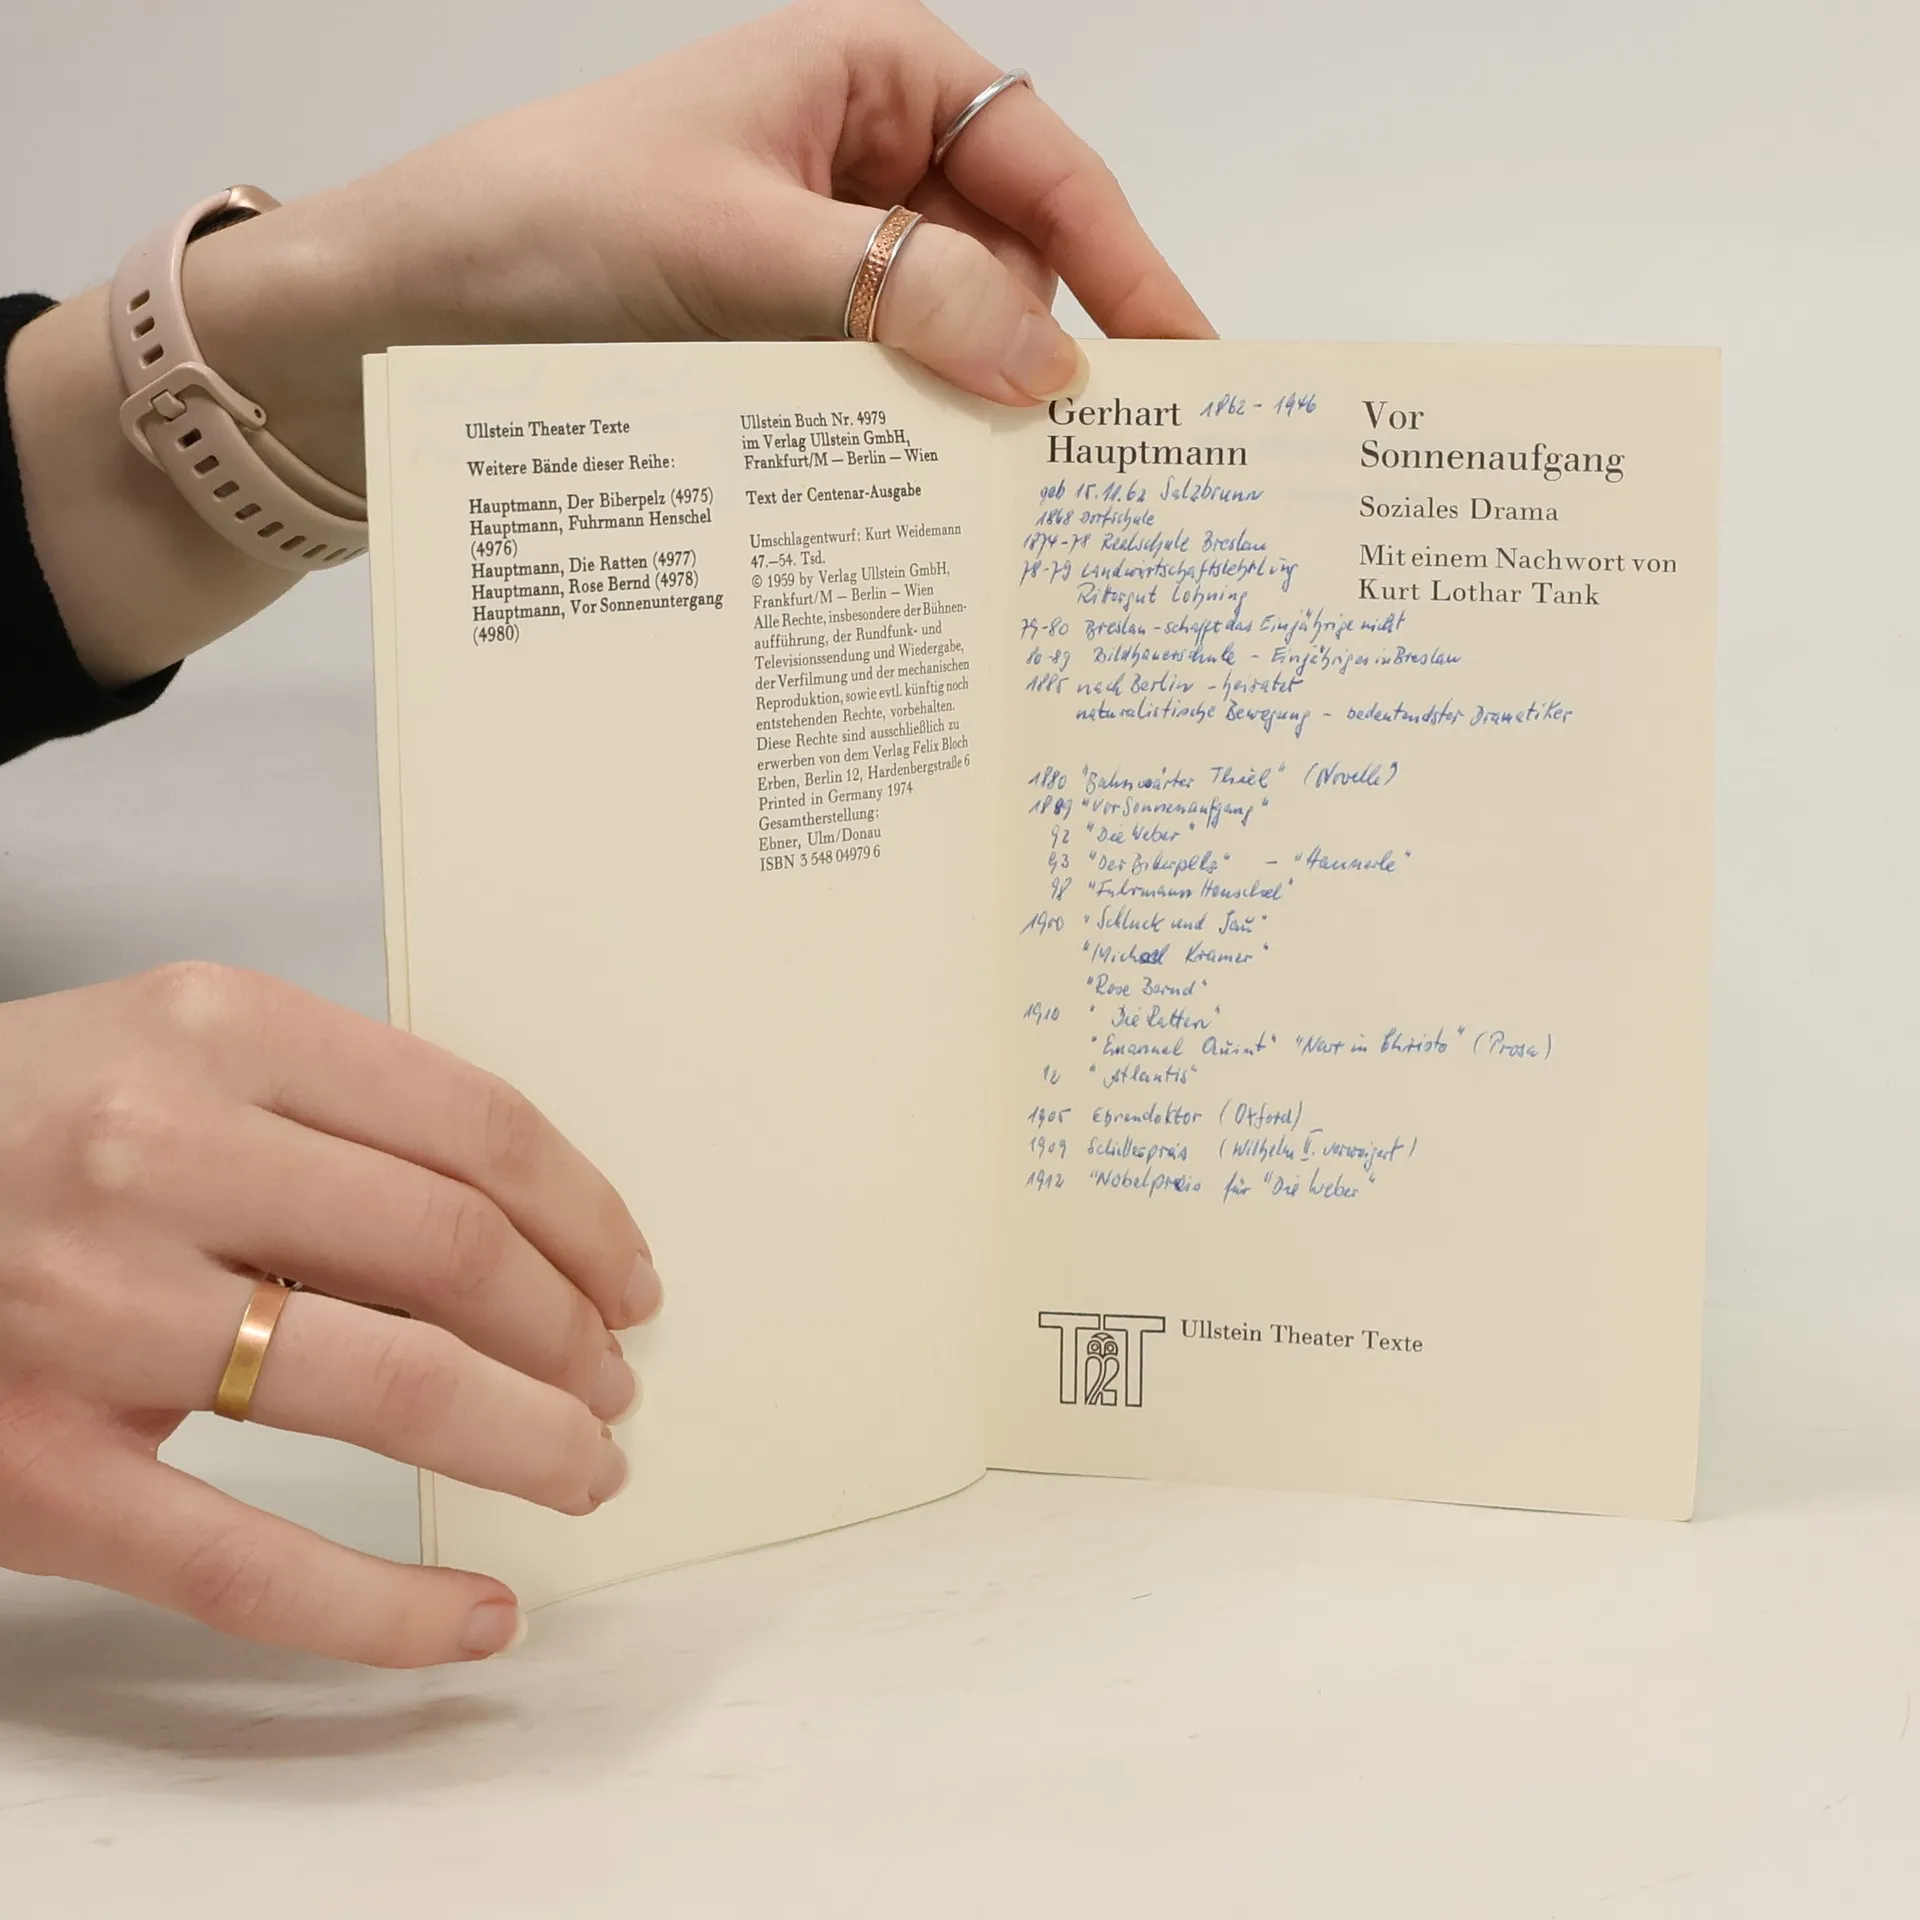 Ullstein Theater Texte
Weitere Bände dieser Reihe:
Hauptmann, Der Biberpelz (4975)
Hauptmann, Fuhrmann Henschel
(4976)
Hauptmann, Die Ratten (4977)
Hauptmann, Rose Bernd (4978)
Hauptmann, Vor Sonnenuntergang
(4980)
Ullstein Buch Nr. 4979
im Verlag Ullstein GmbH,
Frankfurt/M – Berlin – Wien
Text der Centenar-Ausgabe
Umschlagentwurf: Kurt Weidemann
47.–54. Tsd.
© 1959 by Verlag Ullstein GmbH,
Frankfurt/M – Berlin – Wien
Alle Rechte, insbesondere der Bühnen-
aufführung, der Rundfunk- und
Televisionssendung und Wiedergabe,
der Verfilmung und der mechanischen
Reproduktion, sowie evtl. künftig noch
entstehenden Rechte, vorbehalten.
Diese Rechte sind ausschließlich zu
erwerben von dem Verlag Felix Bloch
Erben, Berlin 12, Hardenbergstraße 6
Printed in Germany 1974
Gesamtherstellung:
Ebner, Ulm/Donau
ISBN 3 548 04979 6
Gerhart 1862 - 1946
Hauptmann
geb 15.11.62 Salzbrunn
1868 Dorfschule
1874-78 Realschule Breslau
78-79 Landwirtschaftslehrling
Rittergut Lohning
79-80 Breslau - schafft das "Einjährige" nicht
80-89 Bildhauerschule - Einjähriges in Breslau
1885 nach Berlin - heiratet
naturalistische Bewegung - bedeutendster Dramatiker
1880 "Bahnwärter Thiel" (Novelle)
1889 "Vor Sonnenaufgang"
92 "Die Weber"
93 "Der Biberpelz" - "Hannerle"
98 "Fuhrmann Henschel"
1900 "Schluck und Jau"
"Michael Kramer"
"Rose Bernd"
1910 "Die Ratten"
"Emanuel Quint" "Narr in Christo" (Prosa)
12 "Atlantis"
1905 Ehrendoktor (Oxford)
1909 Schillerpreis (Wilhelm II. verweigert)
1912 "Nobelpreis für "Die Weber"
Vor
Sonnenaufgang
Soziales Drama
Mit einem Nachwort von
Kurt Lothar Tank
TT Ullstein Theater Texte